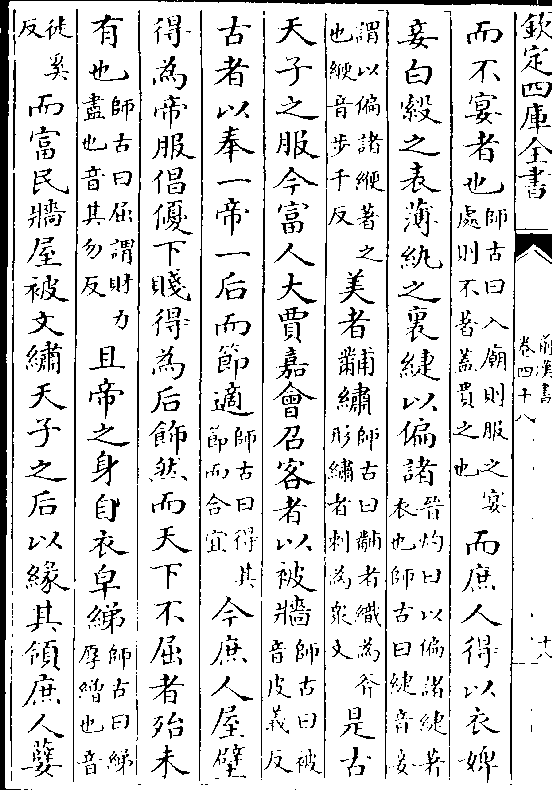 欽定四庫全書
前漢書
卷四十八
十八
而不宴者也師古曰入廟則服之宴處則不著蓋貴之也而庶人得以衣婢
妾白縠之表薄紈之裏緁以偏諸晉灼曰以偏諸緁著衣也師古曰緁音妾
謂以偏諸緶著之也緶音步千反美者黼繡師古曰黼者織為斧形繡者刺為衆文是古
天子之服今富人大賈嘉會召客者以被牆師古曰被音皮義反
古者以奉一帝一后而節適師古曰得其節而合宜今庶人屋壁
得為帝服倡優下賤得為后飾然而天下不屈者殆未
有也師古曰屈謂財力盡也音其勿反且帝之身自衣皁綈師古曰綈厚繒也音
徒奚反而富民牆屋被文繡天子之后以緣其領庶人孽